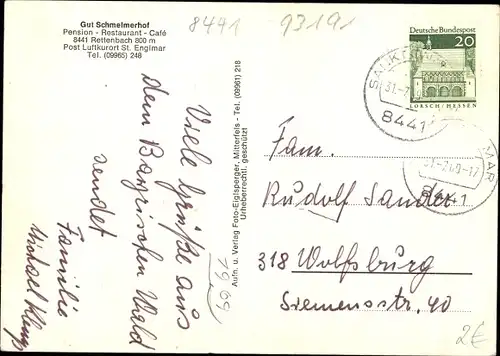 Gut Schmelmerhof
Pension - Restaurant - Café
8441 Rettenbach 800 m
Post Luftkurort St. Englmar
Tel. (09965) 248
8441
93191
Deutsche Bundespost
20
LORSCH/HESSEN
8441
Viele Grüße aus
dem Bayrischen Wald
sendet
Familie
Michael
1969
Aufn. u. Verlag Foto-Eiglsperger, Mitterfels - Tel. (09961) 218
Urheberrechtl. geschützt
Fam.
Rudolf Sander
318 Wolfsburg
Siemensstr. 40
2€